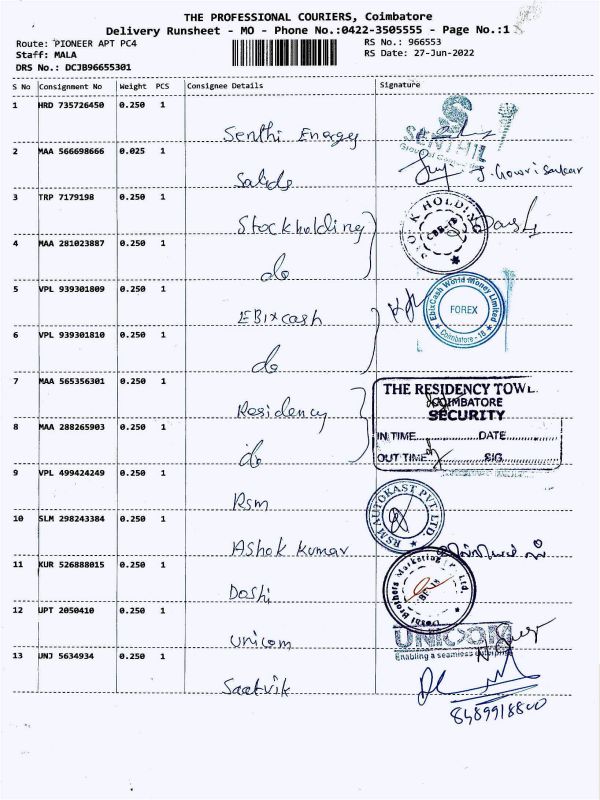 THE PROFESSIONAL COURIERS, Coimbatore
Delivery Runsheet - MO - Phone No.:0422-3505555 - Page No.:1
Route: PIONEER APT PC4
RS No.: 966553
Staff: MALA
RS Date: 27-Jun-2022
DRS No.: DCJB96655301
S No Consignment No Weight PCS Consignee Details Signature
1 HRD 735726450 0.250 1
Senthil Energy
SENTHIL
2 MAA 566698666 0.025 1
J. Gowri Sankar
3 TRP 7179198 0.250 1
Stockholding
STOCK HOLDING
4 MAA 281023887 0.250 1
do
5 VPL 939301809 0.250 1
EBixcash
EbixCash World Money Limited
FOREX
Coimbatore - 18
6 VPL 939301810 0.250 1
do
7 MAA 565356301 0.250 1
Residency
THE RESIDENCY TOWE
COIMBATORE
SECURITY
8 MAA 288265903 0.250 1
do
IN TIME DATE
OUT TIME SIG
9 VPL 499424249 0.250 1
Rsm
RSM AUTOKAST PVT. LTD.
10 SLM 298243384 0.250 1
Ashok Kumar
11 KUR 526888015 0.250 1
Doshi
Doshi Brothers Marketing (P) Ltd.
12 UPT 2050410 0.250 1
Unicom
UNICOM
Enabling a seamless enterprise
13 UNJ 5634934 0.250 1
Saatvik
8489918800